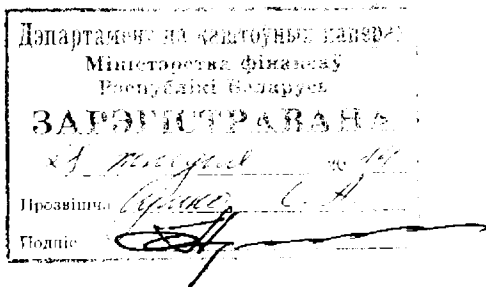 Дэпартамент па каштоўных паперах
Міністэрства фінансаў
Рэспублікі Беларусь
ЗАРЭГІСТРАВАНА
Прозвішча С. А
Подпіс